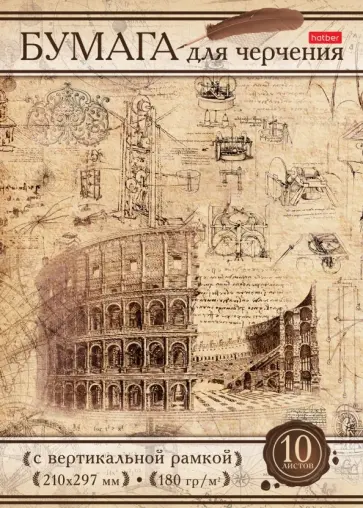 hatber
БУМАГА для черчения
с вертикальной рамкой
210х297 мм • 180 гр/м²
10
ЛИСТОВ